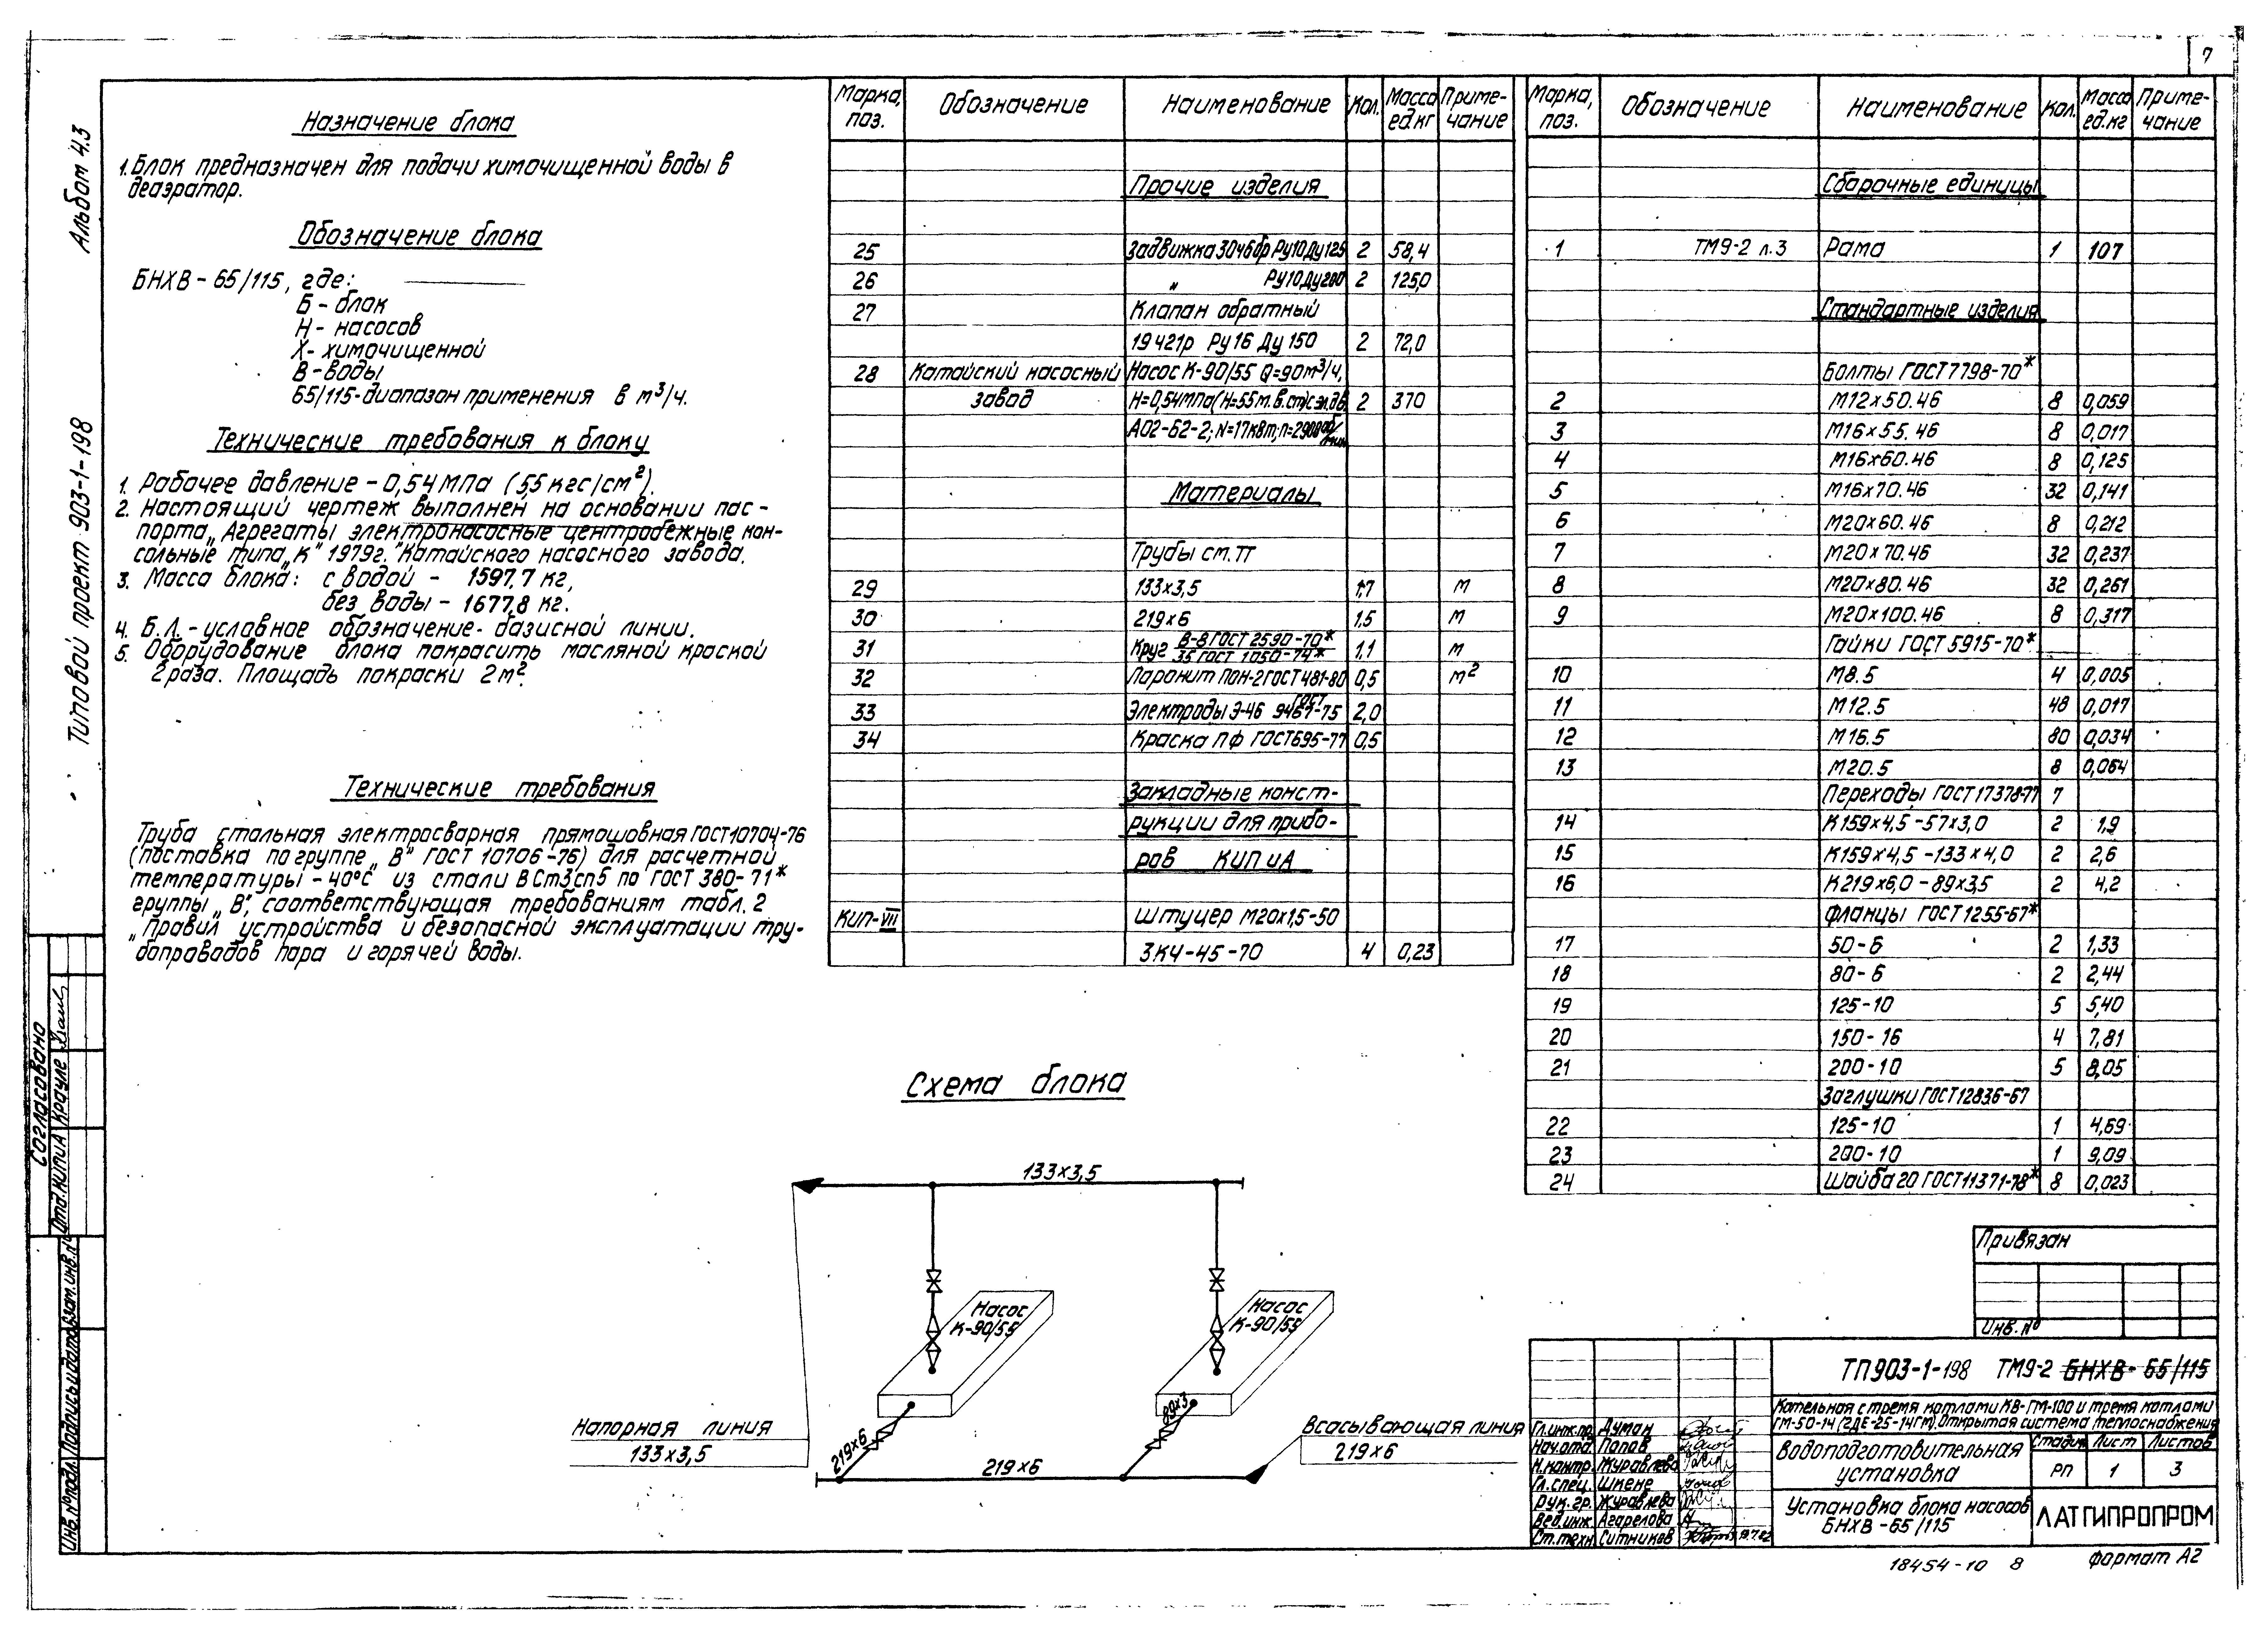 7
Альбом 4.3
Типовой проект 903-1-198
Назначение блока
1. Блок предназначен для подачи химочищенной воды в
деаэратор.
Обозначение блока
БНХВ - 65/115, где:
Б - блок
Н - насосов
Х - химочищенной
В - воды
65/115 - диапазон применения в м³/ч.
Технические требования к блоку
1. Рабочее давление - 0,54 МПа (5,5 кгс/см²).
2. Настоящий чертеж выполнен на основании пас-
порта „Агрегаты электронасосные центробежные кон-
сольные типа „К" 1979г." Катайского насосного завода.
3. Масса блока: с водой - 1597,7 кг,
без воды - 1677,8 кг.
4. Б.Л. - условное обозначение базисной линии.
5. Оборудование блока покрасить масляной краской
2 раза. Площадь покраски 2 м².
Технические требования
Труба стальная электросварная прямошовная ГОСТ 10704-76
(поставка по группе „В" ГОСТ 10706-76) для расчетной
температуры - 40°С из стали ВСт3сп5 по ГОСТ 380-71*
группы „В", соответствующая требованиям табл. 2
„Правил устройства и безопасной эксплуатации тру-
бопроводов пара и горячей воды.
Марка, поз. Обозначение Наименование Кол. Масса ед.кг Приме-чание
Прочие изделия
25 Задвижка 30ч6бр Ру10 Ду125 2 58,4
26 „ Ру10 Ду200 2 125,0
27 Клапан обратный
19ч21р Ру16 Ду150 2 72,0
28 Катайский насосный Насос К-90/55 Q=90м³/ч,
завод Н=0,54МПа (Н=55м.в.ст) с эл.дв. 2 370
АО2-62-2; N=17кВт; n=2900об/мин
Материалы
Трубы см. ТТ
29 133х3,5 1,7 м
30 219х6 1,5 м
31 Круг В-8 ГОСТ 2590-70* / 35 ГОСТ 1050-74* 1,1 м
32 Паронит ПОН-2 ГОСТ 481-80 0,5 м²
33 Электроды Э-46 ГОСТ 9467-75 2,0
34 Краска ПФ ГОСТ 695-77 0,5
Закладные конст-
рукции для прибо-
ров КИПиА
КИП-VII Штуцер М20х1,5-50
ЗКЧ-45-70 4 0,23
Марка, поз. Обозначение Наименование Кол. Масса ед.кг Приме-чание
Сборочные единицы
1 ТМ9-2 л.3 Рама 1 107
Стандартные изделия
Болты ГОСТ 7798-70*
2 М12х50.46 8 0,059
3 М16х55.46 8 0,017
4 М16х60.46 8 0,125
5 М16х70.46 32 0,141
6 М20х60.46 8 0,212
7 М20х70.46 32 0,237
8 М20х80.46 32 0,261
9 М20х100.46 8 0,317
Гайки ГОСТ 5915-70*
10 М8.5 4 0,005
11 М12.5 48 0,017
12 М16.5 80 0,034
13 М20.5 8 0,064
Переходы ГОСТ 17378-77 7
14 К159х4,5-57х3,0 2 1,9
15 К159х4,5-133х4,0 2 2,6
16 К219х6,0-89х3,5 2 4,2
Фланцы ГОСТ 1255-67*
17 50-6 2 1,33
18 80-6 2 2,44
19 125-10 5 5,40
20 150-16 4 7,81
21 200-10 5 8,05
Заглушки ГОСТ 12836-67
22 125-10 1 4,69
23 200-10 1 9,09
24 Шайба 20 ГОСТ 11371-78* 8 0,023
Схема блока
133х3,5
Насос
К-90/55
Насос
К-90/55
89х3
219х6
219х6
Напорная линия
133х3,5
Всасывающая линия
219х6
Согласовано
Отд. КИПиА Крауле
Взам. инв. №
Подпись и дата
Инв. № подл.
Привязан
Инв. №
ТП903-1-198 ТМ9-2 БНХВ-65/115
Котельная с тремя котлами КВ-ГМ-100 и тремя котлами
ГМ-50-14 (2ДЕ-25-14ГМ). Открытая система теплоснабжения
Водоподготовительная
установка
Стадия Лист Листов
РП 1 3
Установка блока насосов
БНХВ-65/115
ЛАТГИПРОПРОМ
Гл.инж.пр. Думан
Нач.отд. Попов
Н.контр. Журавлева
Гл.спец. Шкене
Рук.гр. Журавлева
Вед.инж. Агарелова
Ст.техн. Ситников
18454-10 8
Формат А2